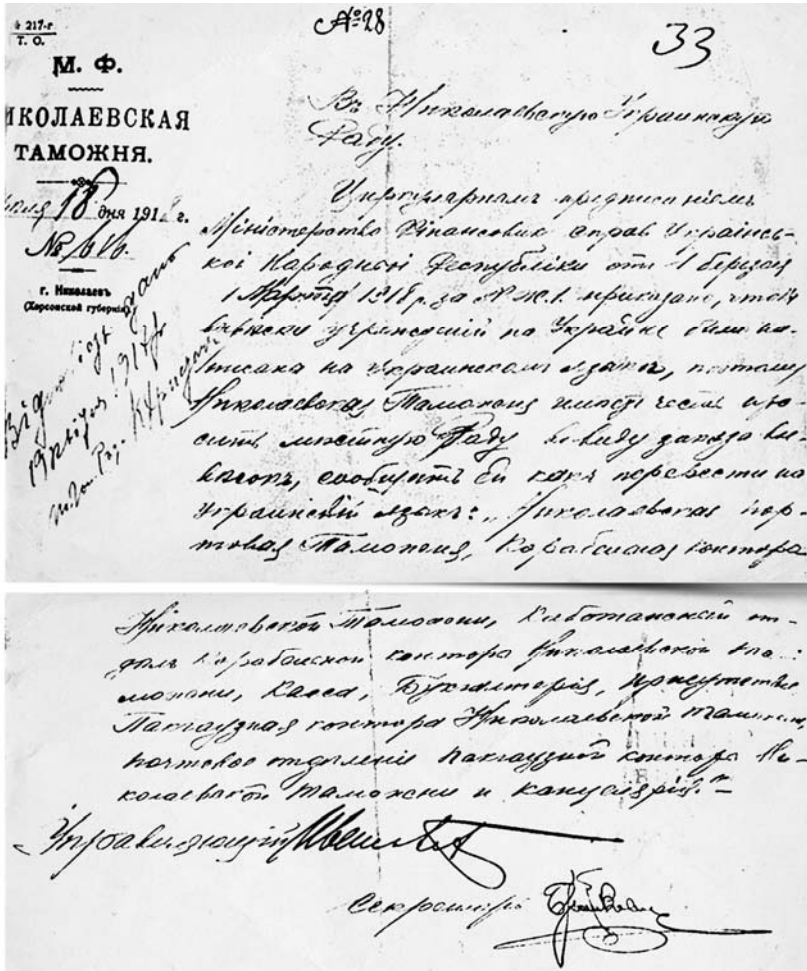 217-г
Т. О.
М. Ф.
ИКОЛАЕВСКАЯ
ТАМОЖНЯ.
18 дня 191 г.
№ 616.
г. Николаевъ
(Херсонской губерніи)
№ 28
33
Въ Николаевскую Украинскую
Раду.
Циркулярнымъ предписаніемъ
Міністерство Фінансових справ Українсь-
коі Народньоі Республіки от 1 березня
1 Марта 1918 г. за № приказано, чтобы
вывѣски учрежденій на Украйне были на-
писана на Украинскомъ языкѣ, поэтому
Николаевская Таможня имѣетъ честь про-
ситъ мѣстную Раду ввиду заказа вы-
вѣсокъ, сообщить ей какъ перевести на
Украинскій языкъ: „Николаевская пор-
товая Таможня, Корабельная контора
Николаевской Таможни, Каботажный от-
дѣлъ Корабельной контора Николаевской та-
можни, Касса, Бухгалтерія, присутствіе
Пакгаузная контора Николаевской таможни,
почтовое отдѣленіе пакгаузной контора Ни-
колаевской таможни и канцелярія."
Управляющій
Секретарь